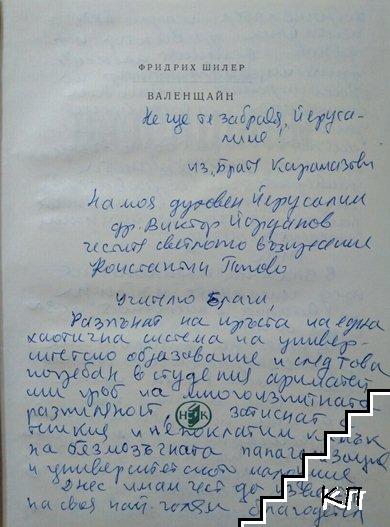 ФРИДРИХ ШИЛЕР
ВАЛЕНЩАЙН
Не ще те забравя, Йеруса-
лиме!
из "Братя Карамазови
На моя духовен Йерусалим
др. Виктор Йорданов
честито светлото възкресение
Константин Попово
Учителю благи,
Разпънат на кръста на една
хаотична система на универ-
ситетско образование и след това
погребан в студения
гроб на многоизпитната
НК затиснат с
тежкия и непоклатим камък
на безмозъчната папагализация
и университетското
Днес имам чест да
на своя най-голям благодетел
КЛ